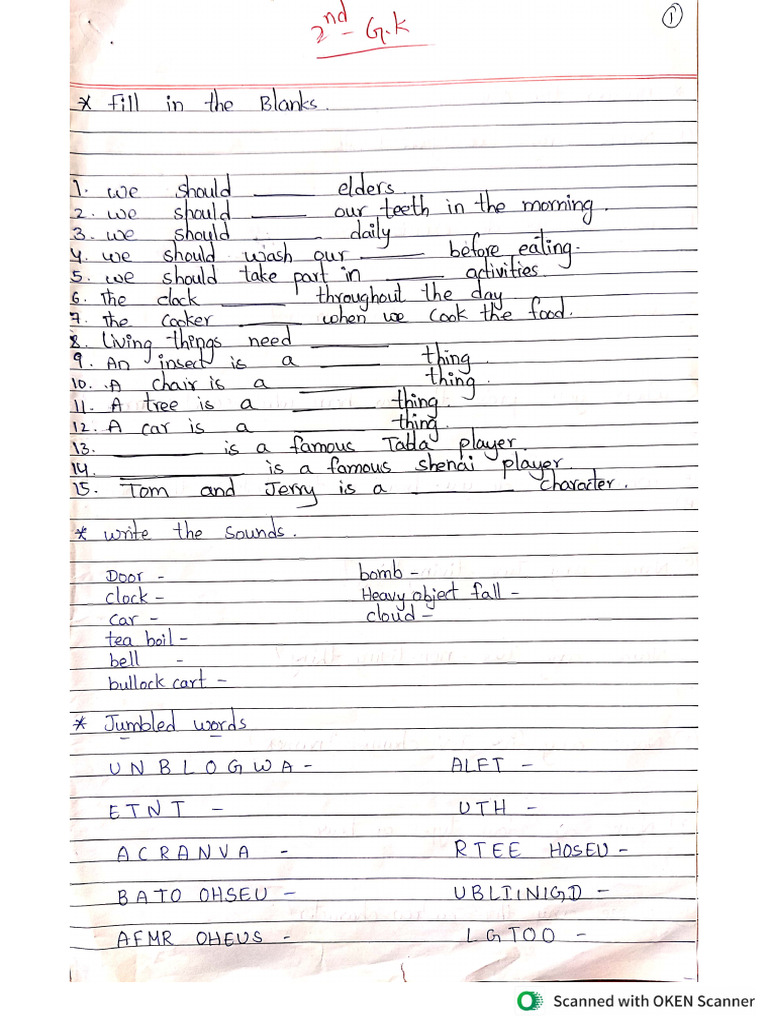 2nd - G.K
1
* Fill in the Blanks.
1. we should ______ elders.
2. we should ______ our teeth in the morning.
3. we should ______ daily
4. we should wash our ______ before eating.
5. we should take part in ______ activities.
6. the clock ______ throughout the day
7. the cooker ______ when we cook the food.
8. Living things need ______
9. An insect is a ______ thing.
10. A chair is a ______ thing.
11. A tree is a ______ thing.
12. A car is a ______ thing.
13. ______ is a famous Tabla player.
14. ______ is a famous shenai player.
15. Tom and Jerry is a ______ character.
* write the sounds.
Door - bomb -
clock - Heavy object fall -
car - cloud -
tea boil -
bell -
bullock cart -
* Jumbled words
UNBLOGWA - ALFT -
ETNT - UTH -
ACRANVA - RTEE HOSEU -
BATO OHSEU - UBLIINIGD -
AFMR OHEUS - LGTOO -
Scanned with OKEN Scanner